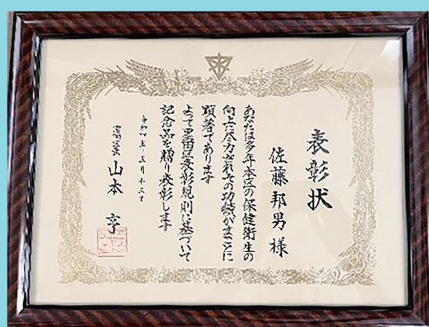 表彰状
佐藤邦男様
あなたは多年本区の保健衛生の
向上に尽力されその功績がまことに
顕著であります
よって墨田区表彰規則に基づいて
記念品を贈り表彰します
墨田区長 山本 亨